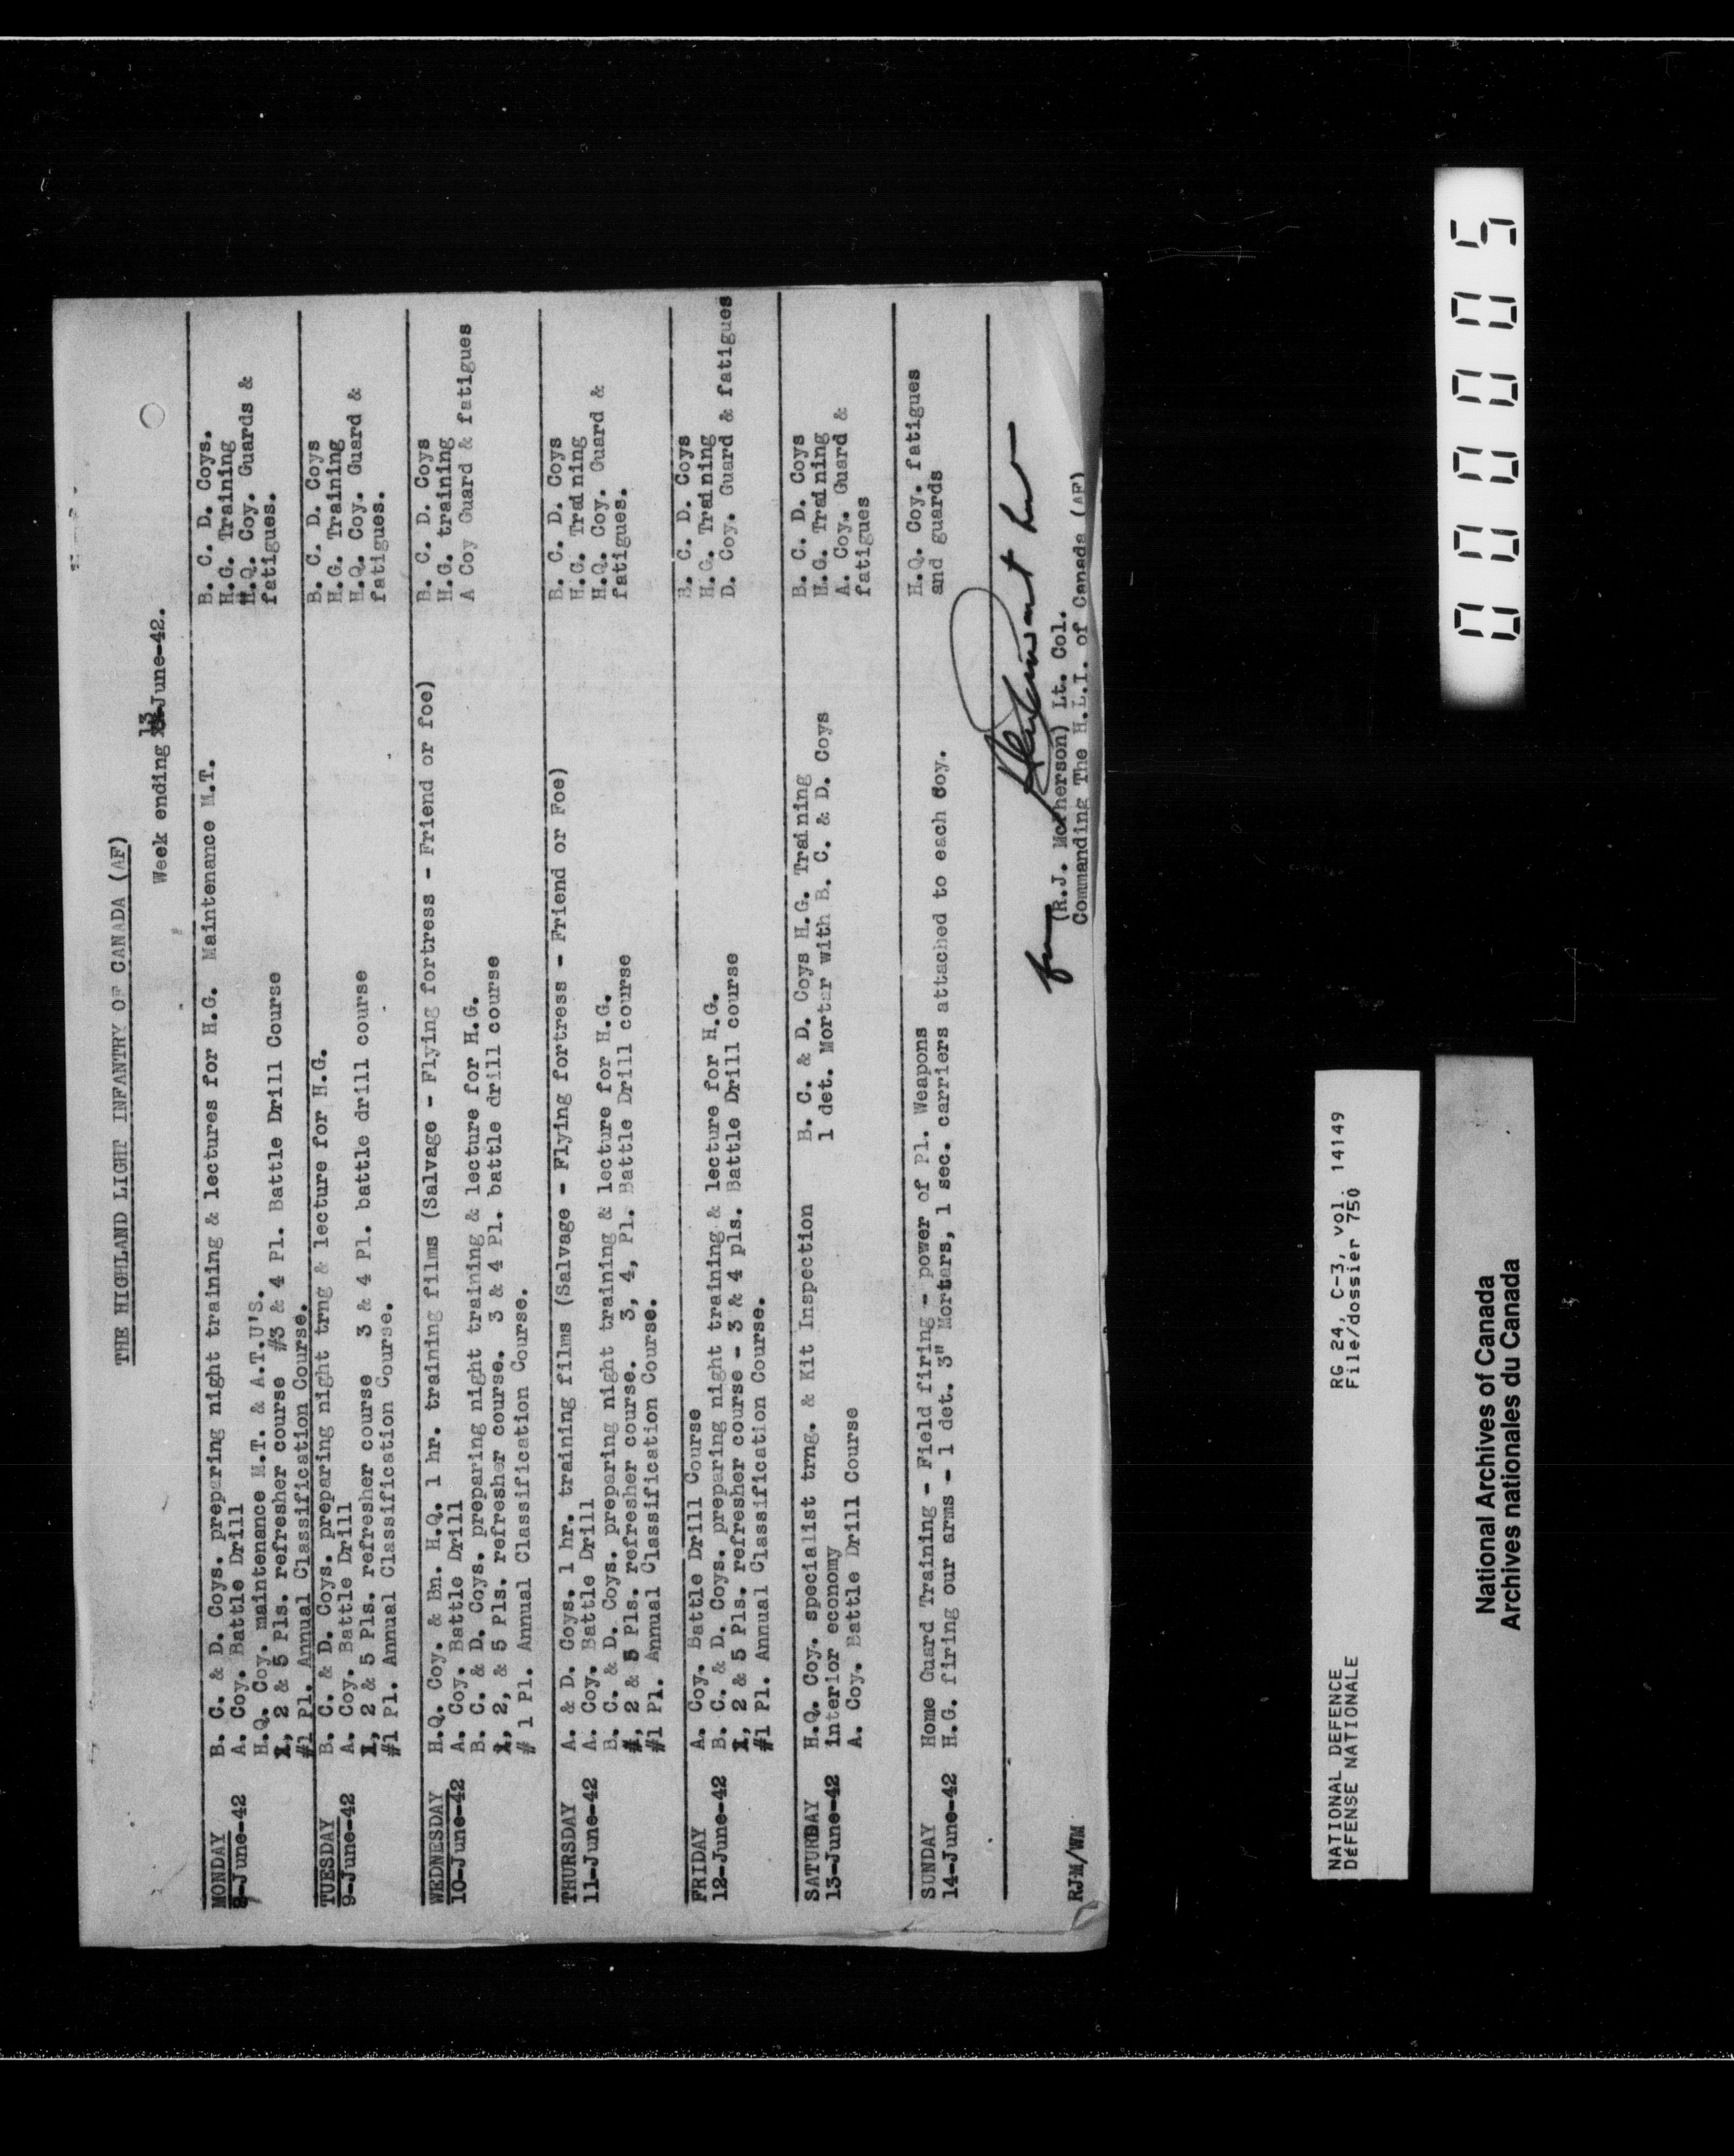 THE HIGHLAND LIGHT INFANTRY OF CANADA (AF)
Week ending 13 June-42.
MONDAY
8-June-42
B. C. & D. Coys. preparing night training & lectures for H.G. Maintenance M.T.
A. Coy. Battle Drill
H.Q. Coy. maintenance M.T. & A.T.U'S.
2 & 5 Pls. refresher course #3 & 4 Pl. Battle Drill Course
#1 Pl. Annual Classification Course.
B. C. D. Coys.
H.G. Training
H.Q. Coy. Guards &
fatigues.
TUESDAY
9-June-42
B. C. & D. Coys. preparing night trng & lecture for H.G.
A. Coy. Battle Drill
2 & 5 Pls. refresher course 3 & 4 Pl. battle drill course
#1 Pl. Annual Classification Course.
B. C. D. Coys
H.G. Training
H.Q. Coy. Guard &
fatigues.
WEDNESDAY
10-June-42
H.Q. Coy. & Bn. H.Q. 1 hr. training films (Salvage - Flying fortress - Friend or foe)
A. Coy. Battle Drill
B. C. & D. Coys. preparing night training & lecture for H.G.
2, & 5 Pls. refresher course. 3 & 4 Pl. battle drill course
# 1 Pl. Annual Classification Course.
B. C. D. Coys
H.G. training
A Coy Guard & fatigues
THURSDAY
11-June-42
A. & D. Coys. 1 hr. training films (Salvage - Flying fortress - Friend or Foe)
A. Coy. Battle Drill
B. C. & D. Coys. preparing night training & lecture for H.G.
2 & 5 Pls. refresher course. 3, 4, Pl. Battle Drill course
#1 Pl. Annual Classification Course.
B. C. D. Coys
H.G. Training
H.Q. Coy. Guard &
fatigues.
FRIDAY
12-June-42
A. Coy. Battle Drill Course
B. C. & D. Coys. preparing night training & lecture for H.G.
2 & 5 Pls. refresher course - 3 & 4 pls. Battle Drill course
#1 Pl. Annual Classification Course.
B. C. D. Coys
H.G. Training
D. Coy. Guard & fatigues
SATURDAY
13-June-42
H.Q. Coy. specialist trng. & Kit Inspection
interior economy
A. Coy. Battle Drill Course
B. C. & D. Coys H.G. Training
1 det. Mortar with B. C. & D. Coys
B. C. D. Coys
H.G. Training
A. Coy. Guard &
fatigues
SUNDAY
14-June-42
Home Guard Training - Field firing - power of Pl. Weapons
H.G. firing our arms - 1 det. 3" Mortars, 1 sec. carriers attached to each Coy.
H.Q. Coy. fatigues
and guards
for
(R.J. McPherson) Lt. Col.
Commanding The H.L.I. of Canada (AF)
RJM/WM
NATIONAL DEFENCE
DÉFENSE NATIONALE
RG 24, C-3, vol. 14149
File/dossier 750
National Archives of Canada
Archives nationales du Canada
000005